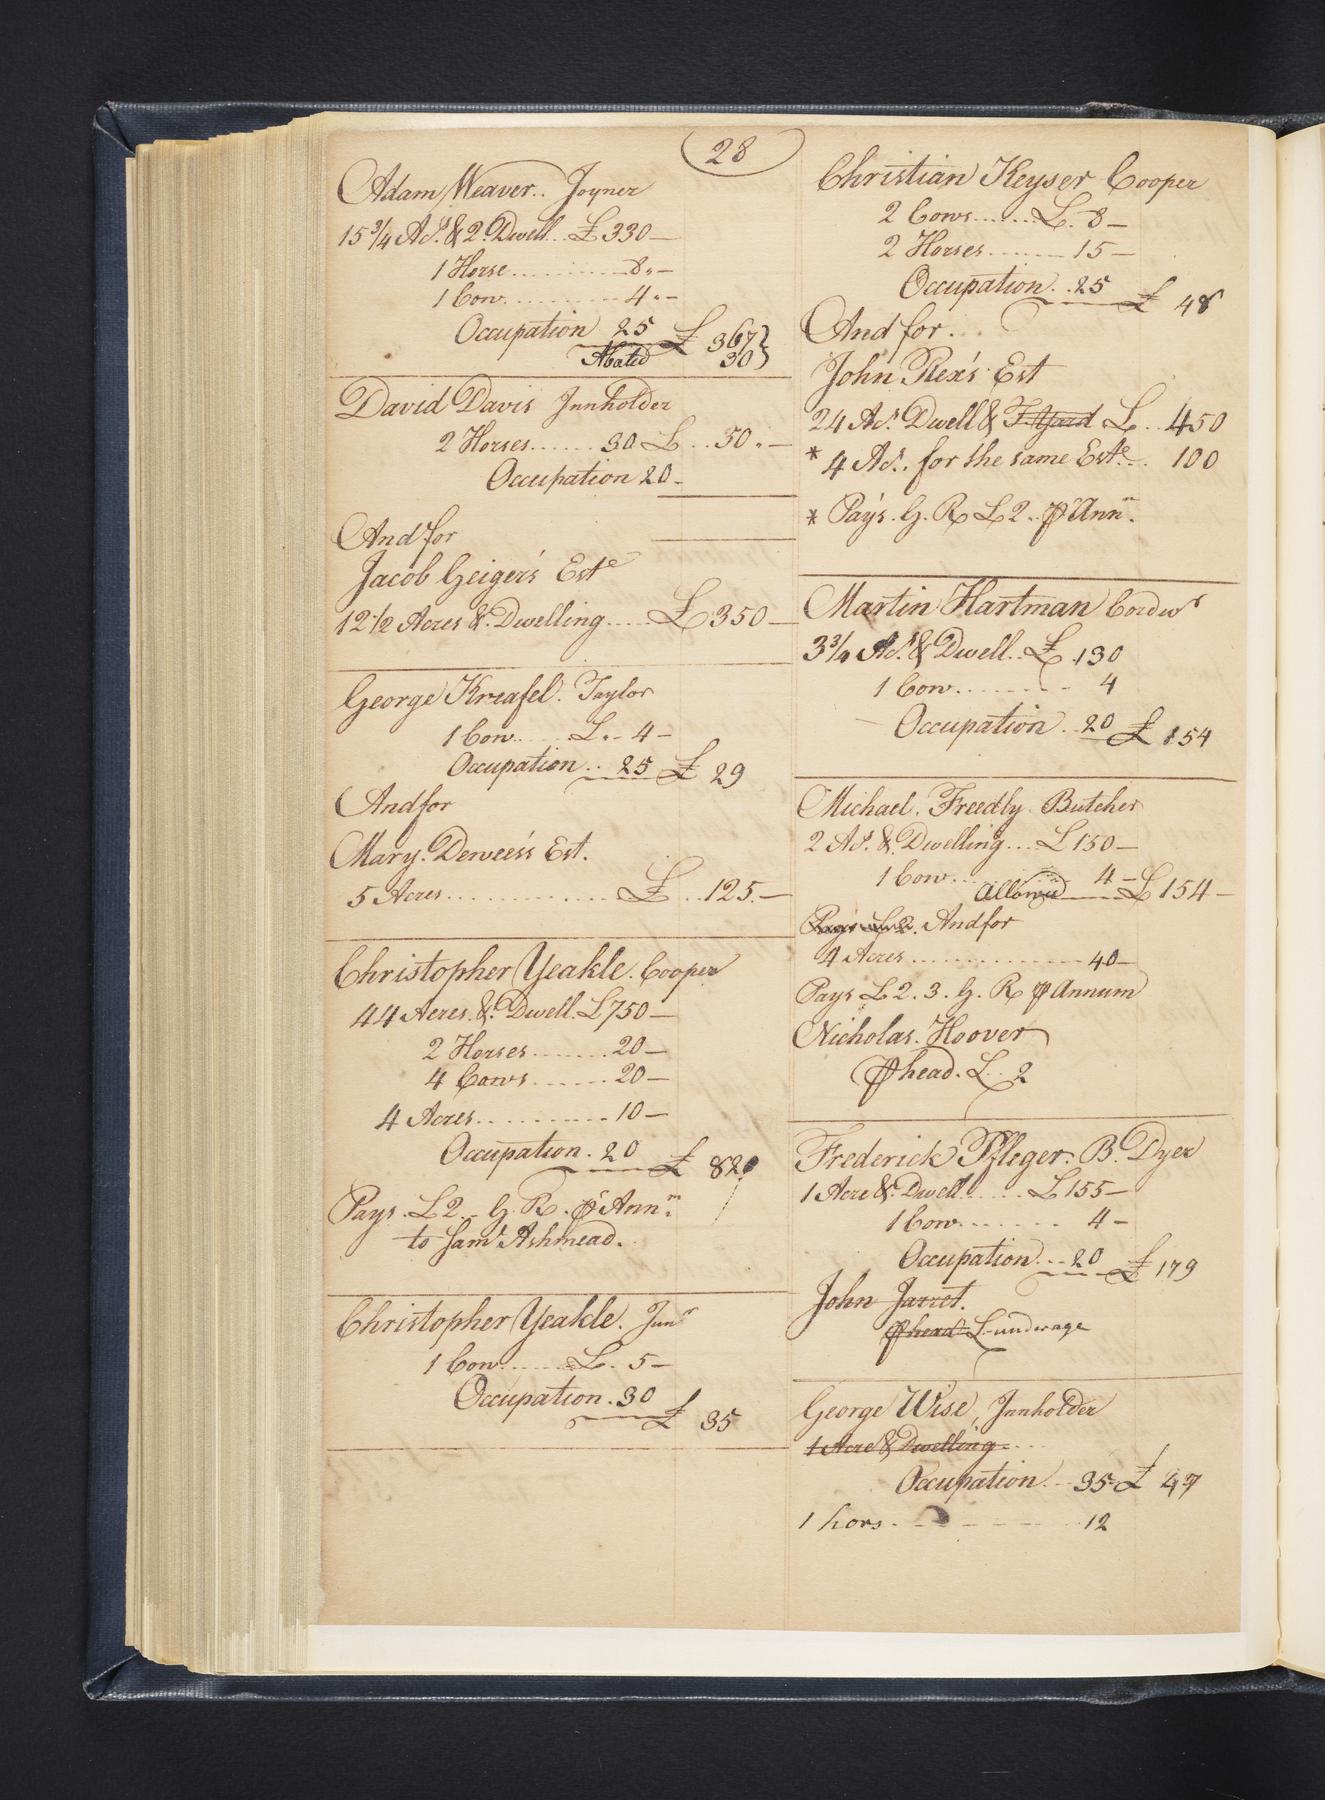 28
Adam Weaver.. Joyner
15 3/4 As. & 2. Dwell.. £ 330—
1 Horse ............ 8„—
1 Cow ............ 4„—
Occupation 25 £ 367
Abated 30
David Davis Innholder
2 Horses ....... 30 £ .. 50.—
Occupation 20—
And for
Jacob Geiger's Este
12 1/2 Acres &. Dwelling ..... £ 350—
George Kreafel. Taylor
1 Cow ...... £.. 4—
Occupation .. 25 £ 29
And for
Mary. Dewees's Est.
5 Acres ............... £ .. 125.—
Christopher Yeakle. Cooper
44 Acres. &. Dwell. £ 750—
2 Horses ....... 20—
4 Cows ....... 20—
4 Acres ........... 10—
Occupation. 20 £ 820
Pays. £ 2.. G. R. ⅌ Annm.
to Saml. Ashmead.
Christopher Yeakle. Junr
1 Cow ...... £. 5—
Occupation. 30 £ 35
Christian Keyser Cooper
2 Cows ...... £. 8—
2 Horses ....... 15—
Occupation. 25 £ 48
And for...
John Rex's Est
24 As. Dwell & T. Yard £ .. 450
* 4 As. for the same Este... 100
* Pay's. G. R £ 2.. ⅌ Annm.
Martin Hartman Cordwr
3 3/4 As. & Dwell.. £ .130
1 Cow ......... 4
Occupation.. 20 £ 154
Michael. Freedly. Butcher
2 As. &. Dwelling.... £ 150—
1 Cow ......... 4—
Allowed £ 154—
And for
4 Acres ............... 40—
Pays £ 2. 3. G. R ⅌ Annum
Nicholas. Hoover
⅌ head. £.. 2
Frederick Pfleger. B. Dyer
1 Acre &. Dwell...... £ 155—
1 Cow ........ 4—
Occupation... 20 £ 179
John Jarret.
⅌ head £ underage
George Wise, Innholder
1 Acre & Dwelling....
Occupation.. 35 £ 47
1 hors - - - - - - 12